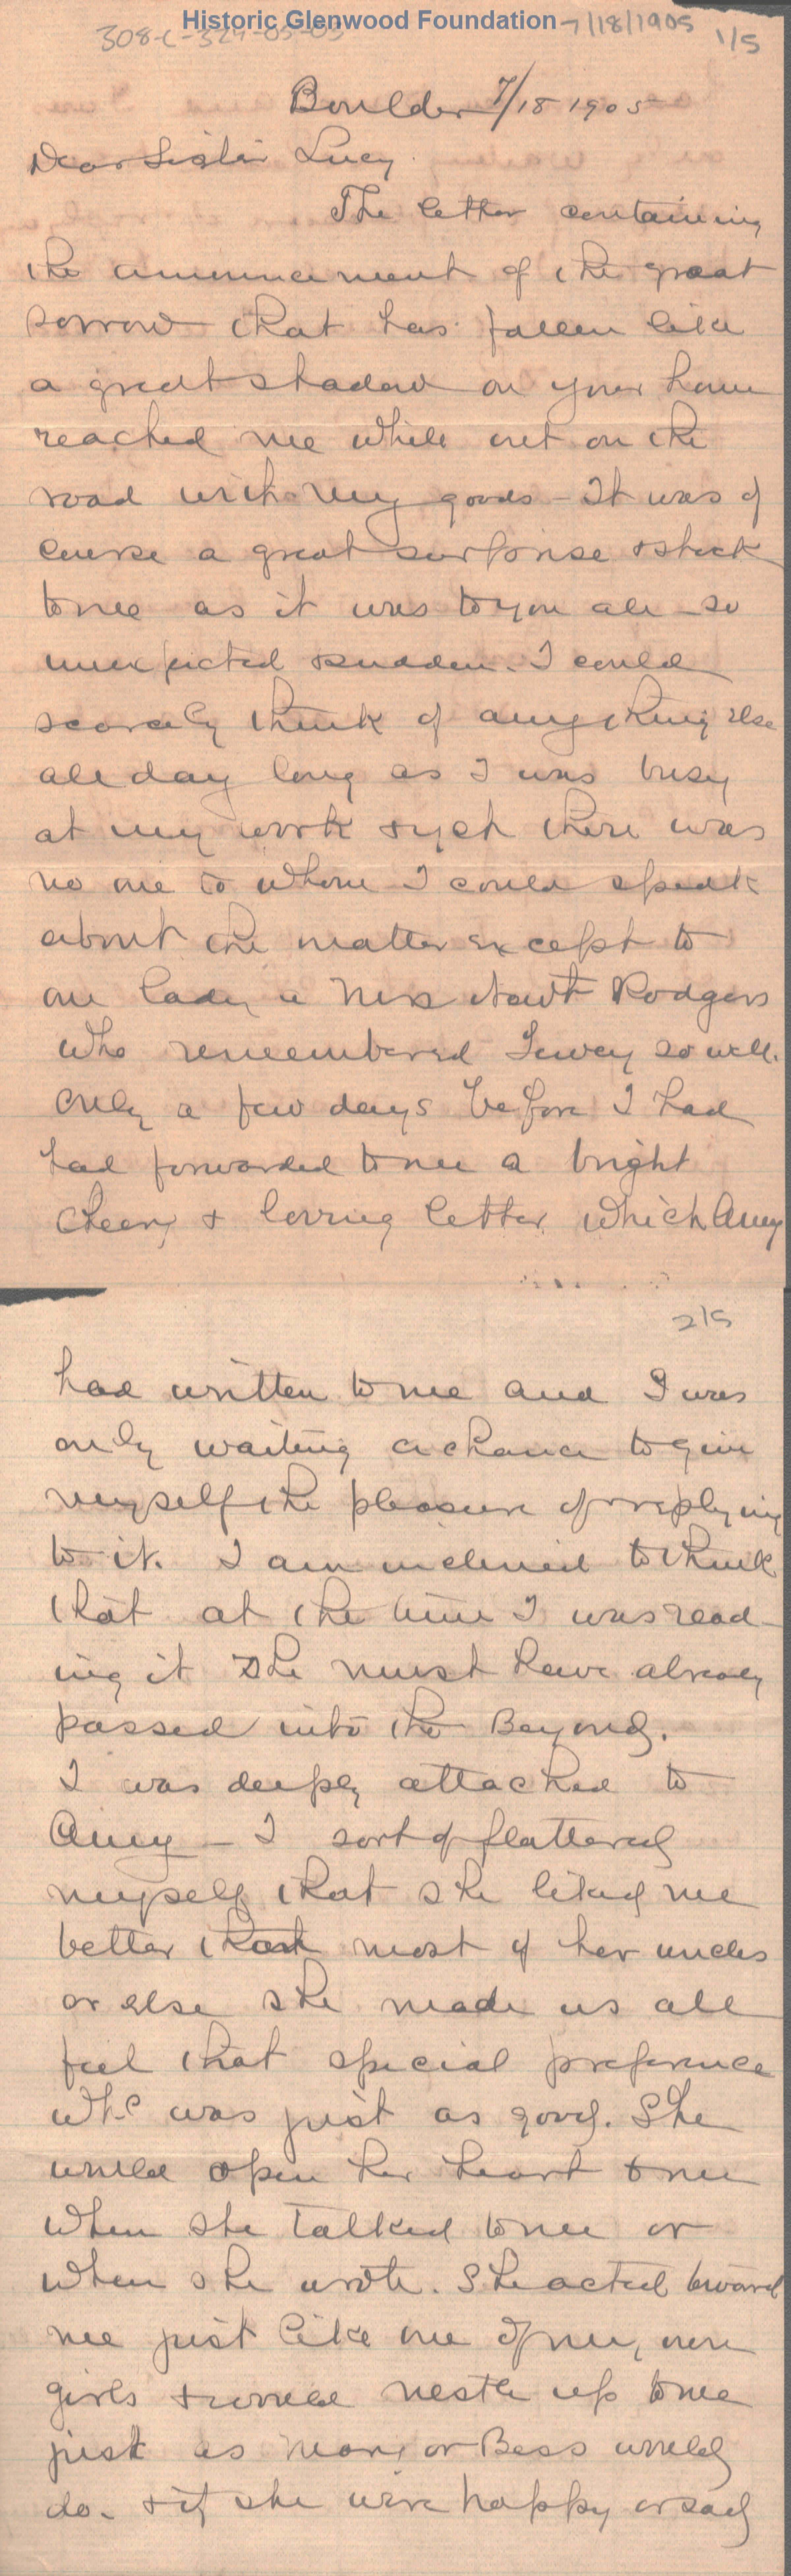 Historic Glenwood Foundation
308-C-329-05-05
7/18/1905
1/5
Boulder 7/18 1905
Dear Sister Lucy
The letter containing
the announcement of the great
sorrow that has fallen like
a great shadow on your home
reached me while out on the
road with my goods - It was of
course a great surprise & shock
to me as it was to you all so
unexpected & sudden. I could
scarcely think of anything else
all day long as I was busy
at my work & yet there was
no one to whom I could speak
about the matter except to
one lady a Mrs Newt Rodgers
who remembered so well.
Only a few days before I had
had forwarded to me a bright
cheery & loving letter which Amy
2/5
had written to me and I was
only waiting a chance to give
myself the pleasure of replying
to it. I am inclined to think
that at the time I was read-
ing it she must have already
passed into the Beyond.
I was deeply attached to
Amy - I sort of flattered
myself that she liked me
better than most of her uncles
or else she made us all
feel that special preference
was just as good. She
would open her heart to me
when she talked to me or
when she wrote. She acted toward
me just like one of my own
girls & would nestle up to me
just as Mary or Bess would
do. & if she were happy or sad